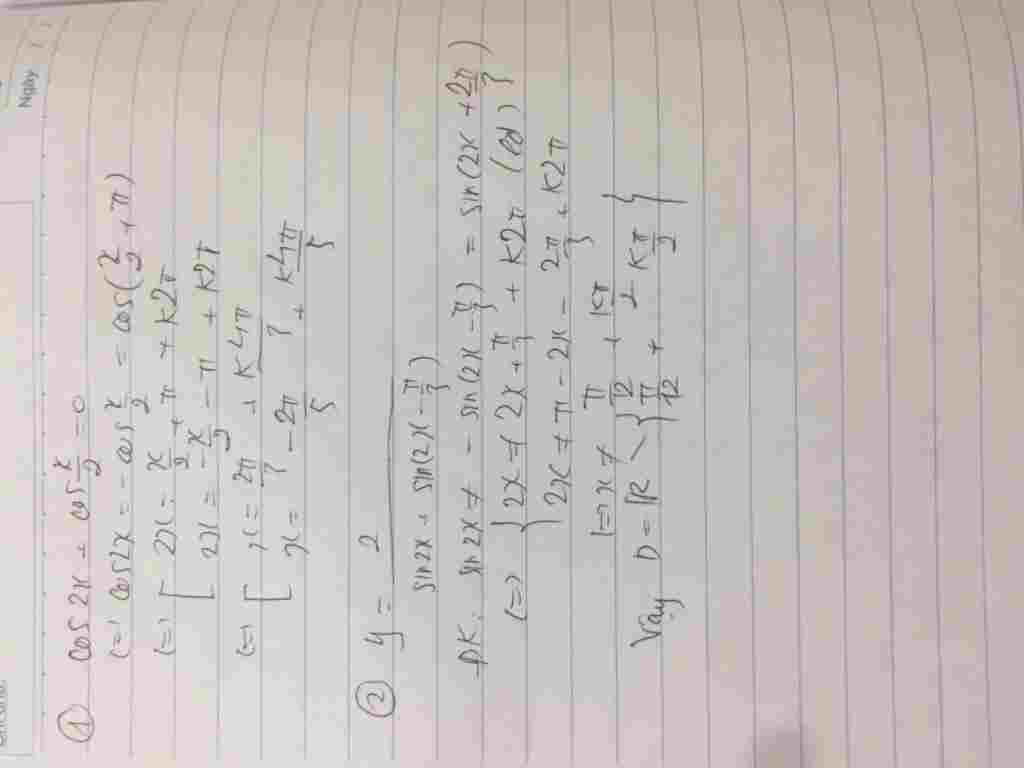 Ngày
① cos2x + cos x/2 = 0
(=) cos2x = - cos x/2 = cos(x/2 + π)
(=) [ 2x = x/2 + π + k2π
2x = -x/2 - π + k2π
(=) [ x = 2π/3 + k4π/3
x = -2π/5 + k4π/5
② y = 2/(sin2x + sin(2x - π/3))
ĐK: sin2x ≠ - sin(2x - π/3) = sin(2x + 2π/3)
(=) { 2x ≠ 2x + π/3 + k2π (lđ)
2x ≠ π - 2x - 2π/3 + k2π
(=) x ≠ π/12 + kπ/2
Vậy D = R \ { π/12 + kπ/2 }